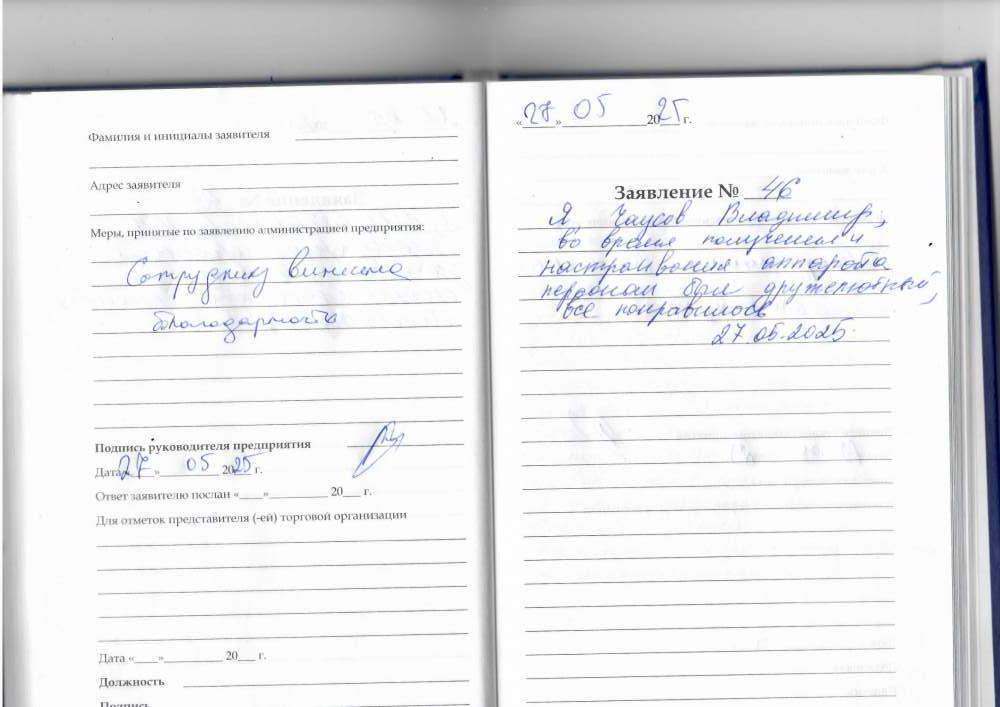 Фамилия и инициалы заявителя
Адрес заявителя
Меры, принятые по заявлению администрацией предприятия:
Сотруднику вынисина
благодарность
Подпись руководителя предприятия
Дата «27» 05 2025 г.
Ответ заявителю послан «____»__________ 20___ г.
Для отметок представителя (-ей) торговой организации
Дата «____»__________ 20___ г.
Должность
Подпись
«27» 05 2025 г.
Заявление № 46
Я Чаусов Владимир,
во время получения и
настраивания аппарата
персонал был дружелюбный,
всё понравилось
27.05.2025.